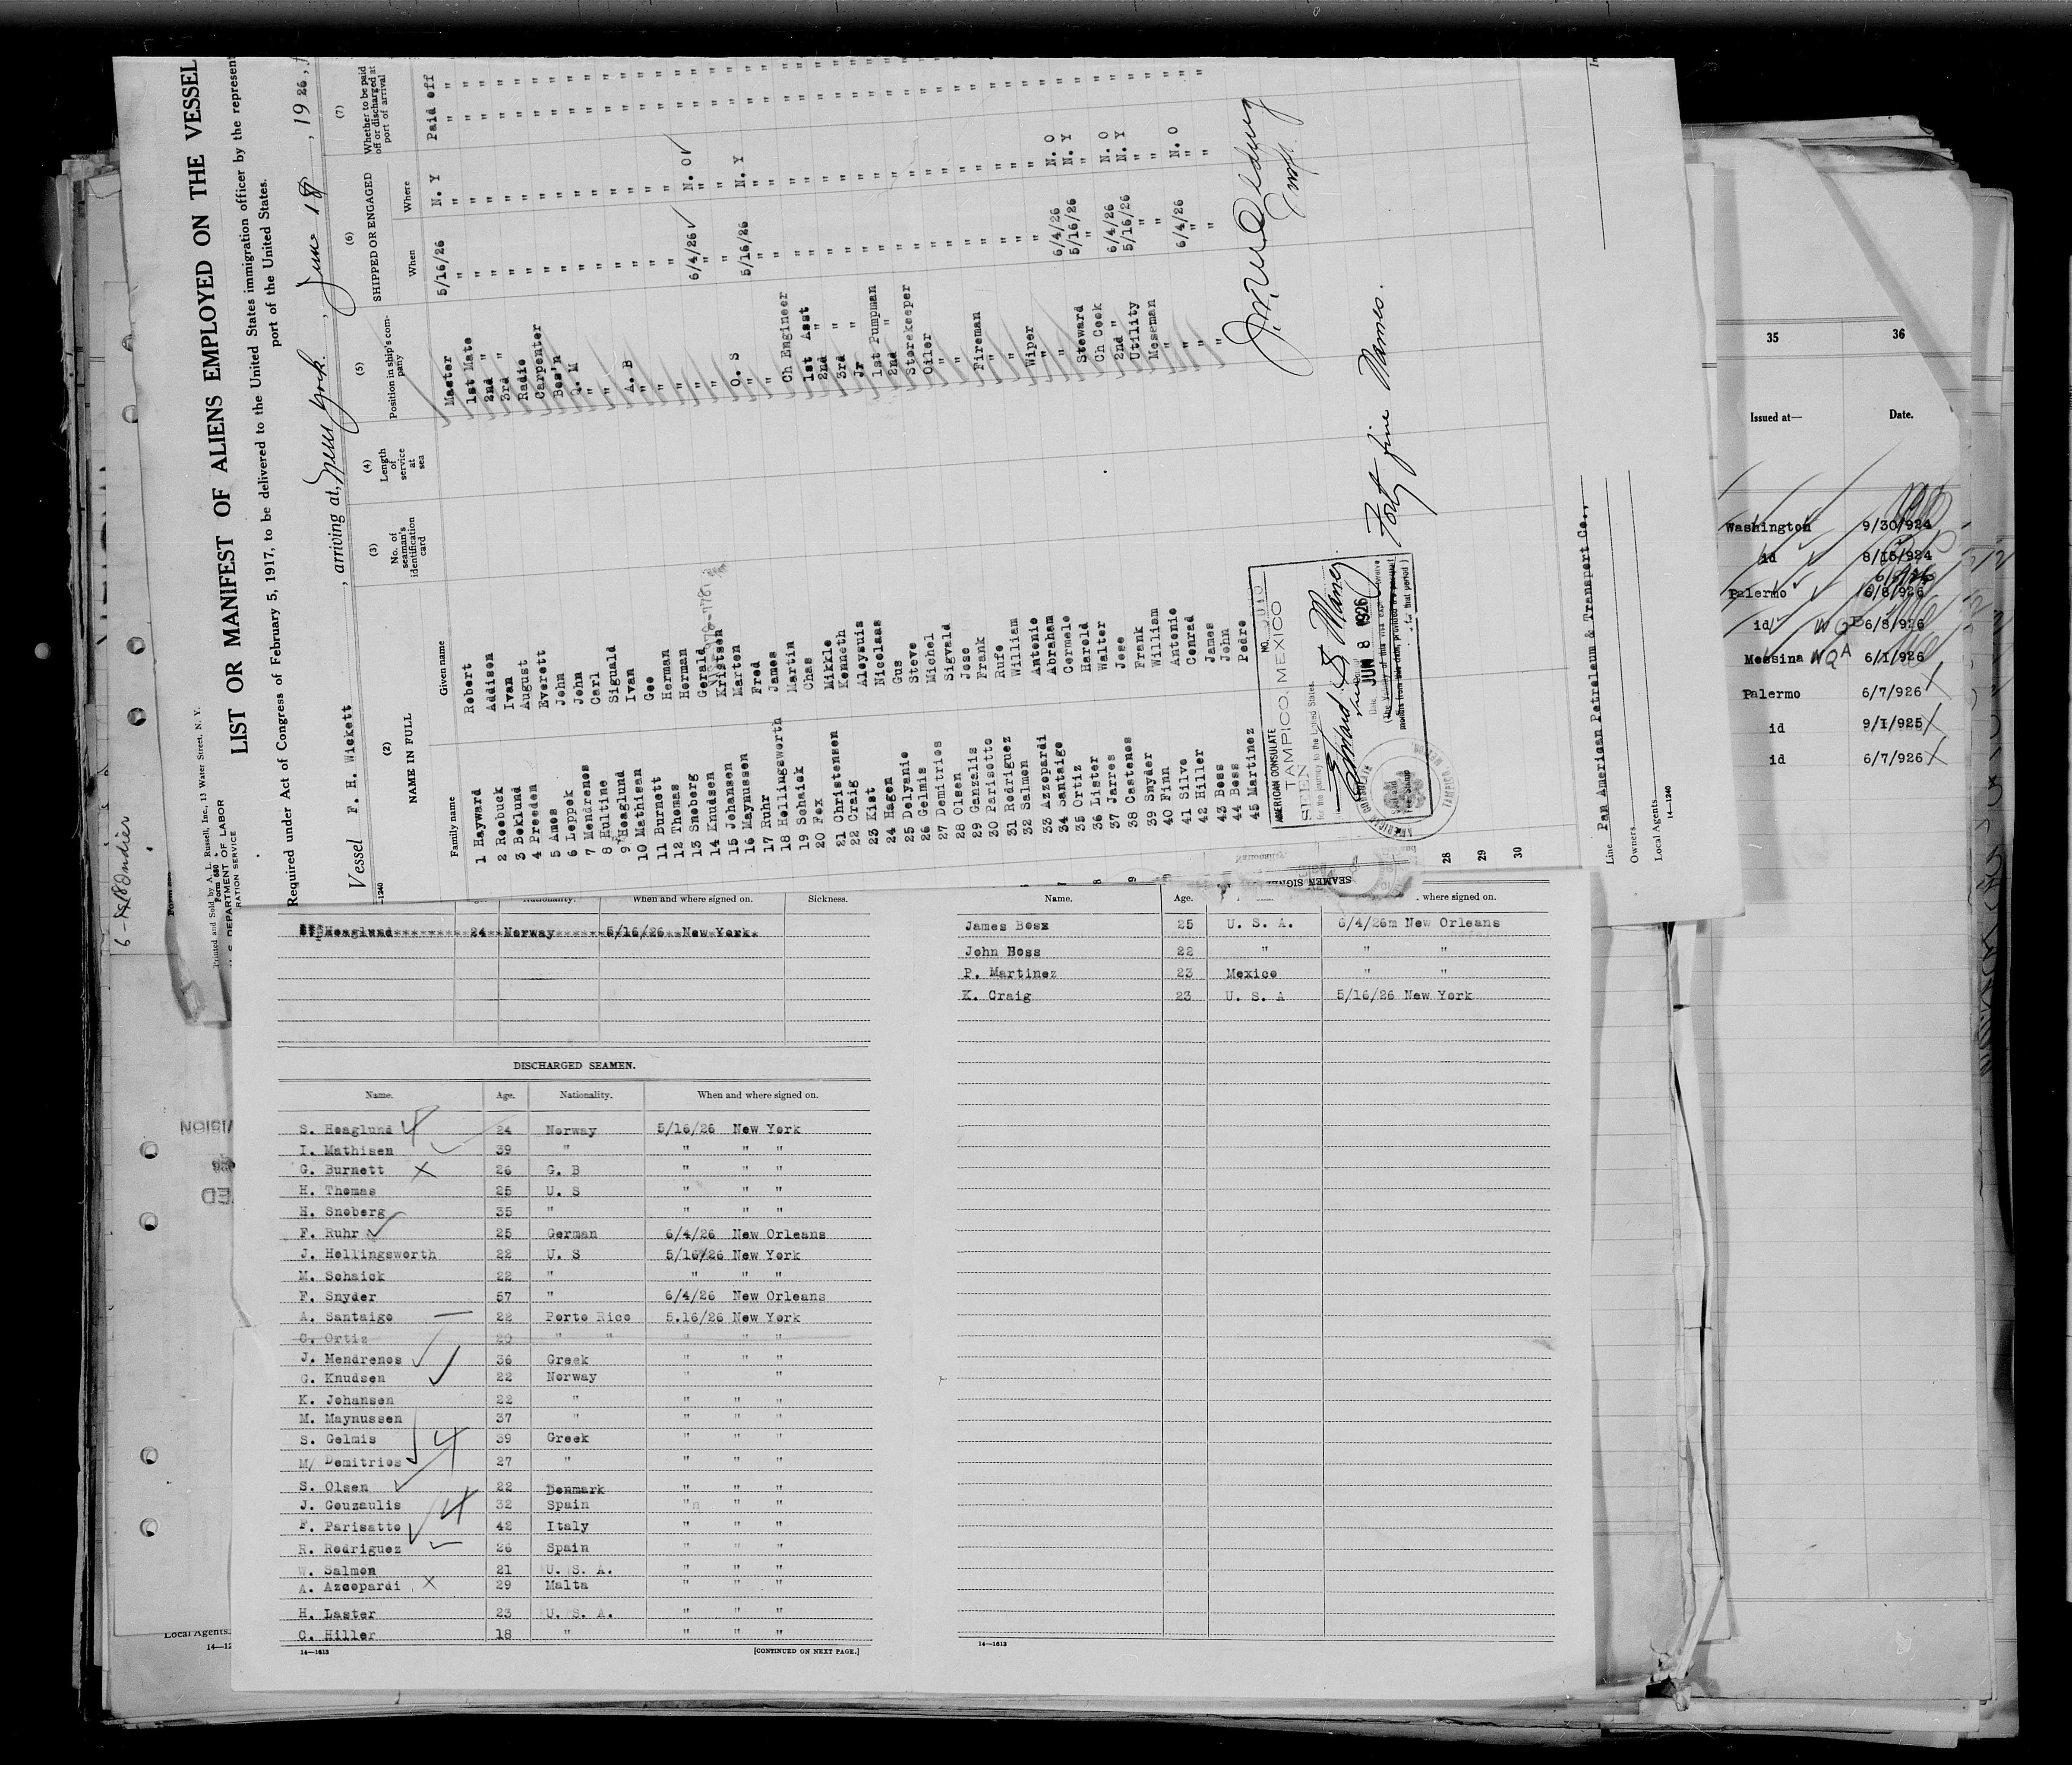 LIST OR MANIFEST OF ALIENS EMPLOYED ON THE VESSEL
Required under Act of Congress of February 5, 1917, to be delivered to the United States immigration officer by the represen
port of the United States.
Vessel F. H. Wickett, arriving at, New York., June 18, 1926,
Printed and Sold by A. L. Russell, Inc., 13 Water Street, N. Y.
Form 680
U. S. DEPARTMENT OF LABOR
RATION SERVICE
(2) (3) (4) (5) (6) (7)
NAME IN FULL
Family name Given name
No. of seaman's identification card
Length of service at sea
Position in ship's company
SHIPPED OR ENGAGED
When Where
Whether to be paid off or discharged at port of arrival
1 Hayward Robert Master 5/16/26 N. Y Paid off
2 Roebuck Addison 1st Mate " " "
3 Beklund Ivan 2nd " " " "
4 Preeden August 3rd " " " "
5 Ames Everett Radio " " "
6 Leppek John Carpenter " " "
7 Mendrenos John Bos'n " " "
8 Hultine Carl Q. M " " "
9 Hoaglund Siguald " " " "
10 Mathisan Ivan " " " "
11 Burnett Geo A. B " " "
12 Thomas Herman " " " "
13 Snoberg Herman " " " "
14 Knudsen Gerald " 6/4/26 N. O "
15 Johansen Kristsen " " " "
16 Maynussen Marten
17 Ruhr Fred
18 Hollingsworth James
19 Schaick Martin
20 Fox Chas Ch Engineer
21 Christensen Mikkle 1st Asst
22 Craig Kenneth 2nd "
23 Kist Aloysuis 3rd "
24 Hagen Nicolaas Jr "
25 Delyanie Gus 1st Pumpman
26 Gelmis Steve 2nd "
27 Demitries Michel Storekeeper
28 Olsen Sigvald Oiler
29 Ganzalis Jose "
30 Parisotto Frank "
31 Rodriguez Rufo Fireman
32 Salmon William "
33 Azzopardi Antonio "
34 Santaigo Abraham Wiper
35 Ortiz Cormelo "
36 Lister Harold "
37 Jarres Walter Steward
38 Castenos Jose Ch Cook
39 Snyder Frank 2nd "
40 Finn William Utility
41 Silvo Antonio Messman
42 Hiller Conrad "
43 Boss James "
44 Boss John "
45 Martinez Pedro "
AMERICAN CONSULATE
TAMPICO, MEXICO
SEEN
for the journey to the United States.
JUN 8 1926
Forty five Names.
28
29
30
Line Pan American Petroleum & Transport Co.,
Owners
Local Agents
14—1240
35 36
Issued at— Date.
Washington 9/30/924
id 8/15/924
Palermo 6/8/926
id 6/8/926
Messina 6/1/926
Palermo 6/7/926
id 9/1/925
id 6/7/926
When and where signed on. Sickness.
Hoaglund 24 Norway 5/16/26 New York
DISCHARGED SEAMEN.
Name. Age. Nationality. When and where signed on.
S. Hoaglund 24 Norway 5/16/26 New York
I. Mathisen 39 " " " "
G. Burnett 26 G. B " " "
H. Thomas 25 U. S " " "
H. Snoberg 35 " " " "
F. Ruhr 25 German 6/4/26 New Orleans
J. Hollingsworth 22 U. S 5/16/26 New York
M. Schaick 22 " " " "
F. Snyder 57 " 6/4/26 New Orleans
A. Santaigo 22 Porto Rico 5.16/26 New York
C. Ortiz 20 " " " " "
J. Mendrenos 36 Greek " " "
G. Knudsen 22 Norway " "
K. Johansen 22 " " " "
M. Maynussen 37 " " " "
S. Gelmis 39 Greek " " "
M/ Demitrios 27 " " " "
S. Olsen 22 Denmark " " "
J. Gouzaulis 32 Spain " " "
F. Parisatto 42 Italy " " "
R. Rodriguez 26 Spain " " "
W. Salmon 21 U. S. A. " " "
A. Azoopardi 29 Malta " " "
H. Laster 23 U. S. A. " " "
C. Hiller 18 " " " "
14—1613
[CONTINUED ON NEXT PAGE.]
Name. Age. where signed on.
James Boss 25 U. S. A. 6/4/26m New Orleans
John Boss 22 " " "
P. Martinez 23 Mexico " "
K. Craig 23 U. S. A 5/16/26 New York
14—1613
Local Agents.